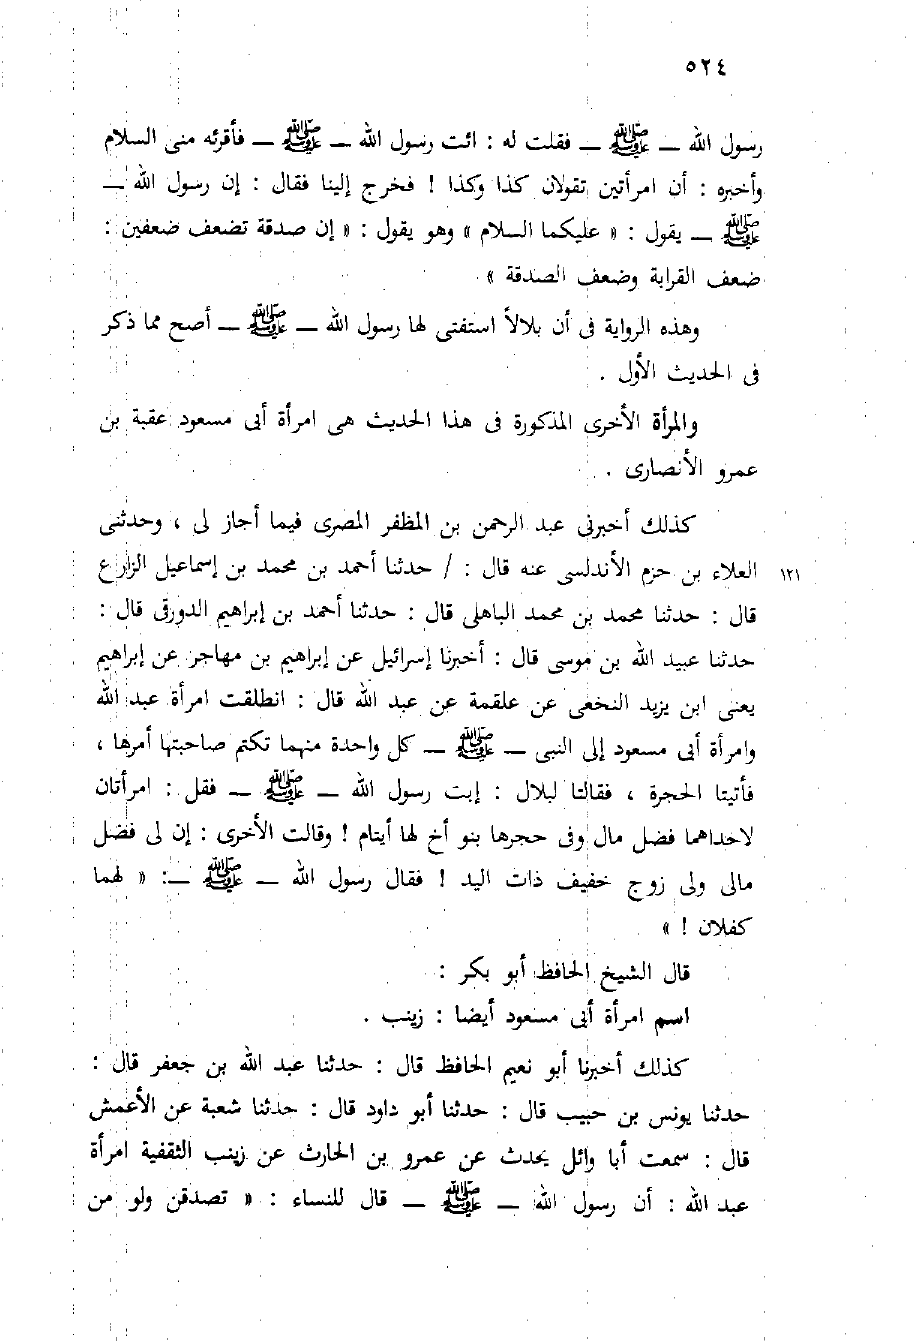 ٥٢٤
رسول الله ــ ﷺ ــ فقلت له : ائت رسول الله ــ ﷺ ــ فأقرئه منى السلام
وأخبره : أن امرأتين تقولان كذا وكذا ! فخرج إلينا فقال : إن رسول الله ــ
ﷺ ــ يقول : « عليكما السلام » وهو يقول : « إن صدقة تضعف ضعفين :
ضعف القرابة وضعف الصدقة »
وهذه الرواية فى أن بلالاً استفتى لها رسول الله ــ ﷺ ــ أصح مما ذكر
فى الحديث الأول .
والمرأة الأخرى المذكورة فى هذا الحديث هى امرأة أبى مسعود عقبة بن
عمرو الأنصارى .
كذلك أخبرنى عبد الرحمن بن المظفر المصرى فيما أجاز لى ، وحدثنى
١٢١ العلاء بن حزم الأندلسى عنه قال : / حدثنا أحمد بن محمد بن إسماعيل الزارع
قال : حدثنا محمد بن محمد الباهلى قال : حدثنا أحمد بن إبراهيم الدورقى قال :
حدثنا عبيد الله بن موسى قال : أخبرنا إسرائيل عن إبراهيم بن مهاجر عن إبراهيم
يعنى ابن يزيد النخعى عن علقمة عن عبد الله قال : انطلقت امرأة عبد الله
وامرأة أبى مسعود إلى النبى ــ ﷺ ــ كل واحدة منهما تكتم صاحبتها أمرها ،
فأتيتا الحجرة ، فقالتا لبلال : إيت رسول الله ــ ﷺ ــ فقل : امرأتان
لاحداهما فضل مال وفى حجرها بنو أخ لها أيتام ! وقالت الأخرى : إن لى فضل
مالى ولى زوج خفيف ذات اليد ! فقال رسول الله ــ ﷺ ــ: « لهما
كفلان ! »
قال الشيخ الحافظ أبو بكر :
اسم امرأة أبى مسعود أيضا : زينب .
كذلك أخبرنا أبو نعيم الحافظ قال : حدثنا عبد الله بن جعفر قال :
حدثنا يونس بن حبيب قال : حدثنا أبو داود قال : حدثنا شعبة عن الأعمش
قال : سمعت أبا وائل يحدث عن عمرو بن الحارث عن زينب الثقفية امرأة
عبد الله : أن رسول الله ــ ﷺ ــ قال للنساء : « تصدقن ولو من